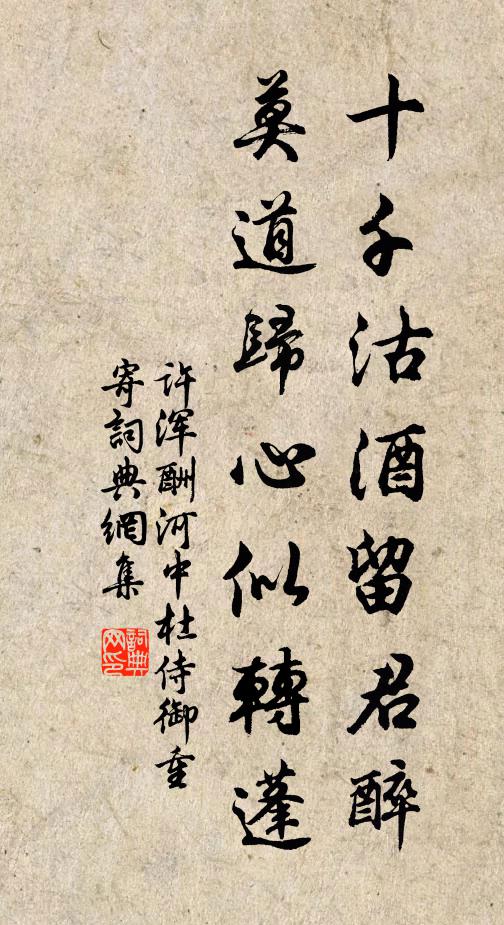 十千沽酒留君醉
莫道歸心似轉蓬
许浑酬河中杜侍御重
寄詞典網集
詞典网印